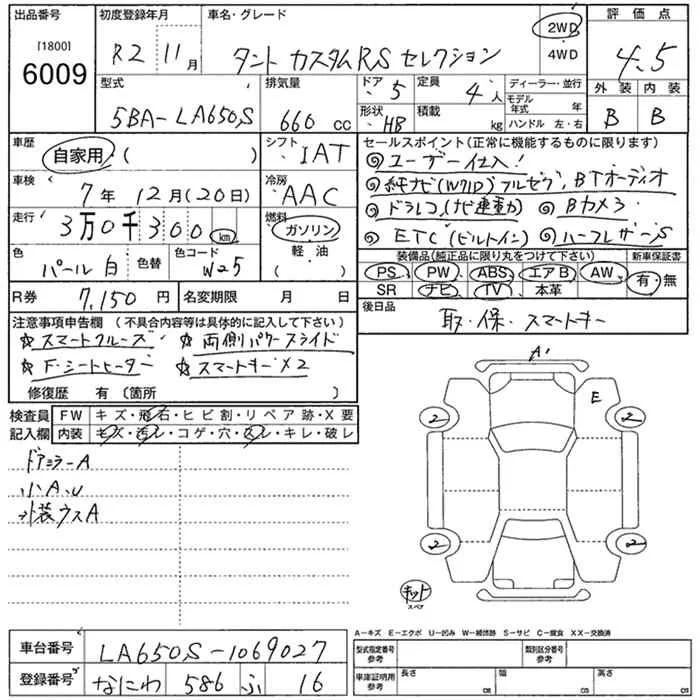 出品番号 初度登録年月 車名・グレード 2WD 評価点
[1800] 6009 R2 11月 タント カスタムRS セレクション 4WD 4.5
型式 排気量 ドア 5 定員 4人 ディーラー・並行 外装 内装
5BA-LA650S 660 cc 形状 HB 積載 kg モデル年式 年 ハンドル 左・右 B B
車歴 自家用 ( ) シフト IAT セールスポイント(正常に機能するものに限ります)
◎ユーザー仕入!
車検 7年 12月(20日) 冷房 AAC ◎純ナビ(W71D) フルセグ、BTオーディオ
走行 3万0千300 km 燃料 ガソリン ◎ドラレコ(ナビ連動) ◎Bカメラ
軽油 ( ) ◎ETC(ビルトイン) ◎ハーフレザーS
色 パール白 色替 色コード W25 装備品(純正品に限り丸をつけて下さい) 新車保証書
PS PW ABS エアB AW 有・無
R券 7,150円 名変期限 月 日 SR ナビ TV 本革
注意事項申告欄 (不具合内容等は具体的に記入して下さい) 後日品
☆スマートクルーズ ☆両側パワースライド 取・保・スマートキー
☆F・シートヒーター ☆スマートキー×2
修復歴 有 (箇所 )
検査員記入欄 FW キズ・飛石・ヒビ割・リペア跡・X要
内装 キズ・汚レ・コゲ・穴・スレ・キレ・破レ
ドアミラーA
小A、U
外装ウスA
A1
E
2 2
2 2
キット
スペア
A-キズ E-エクボ U-凹み W-補修跡 S-サビ C-腐食 XX-交換済
車台番号 LA650S-1069027 型式指定番号 参考 類別区分番号 参考
登録番号 なにわ 586 ふ 16 車庫証明用 参考 長さ cm 幅 cm 高さ cm